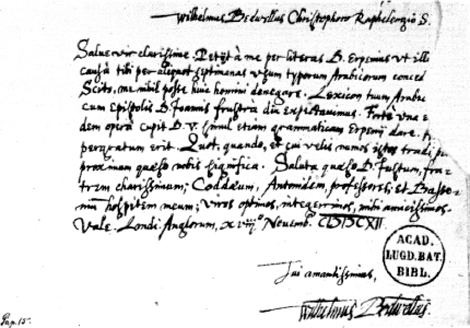 Wilhelmus Bedwellus Christophoro Raphelengio S.
Salue vir clarissime. Petijt à me per literas D. Erpenius vt illi
causâ tibi per aliquot septimanas vsum typorum Arabicorum conced
Scito, me nihil posse huic homini denegare. Lexicon tuum Arabic
cum Epistolis D. Joannis frustrà diu expectauimus. Forte vna e
dem opera cupit D. V. simul etiam grammaticam Erpenij dare.
pergratum erit. Quot, quando, et cui velis numos istos tradi
proximam quæso nobis significa. Saluta quæso D. Justum, fra-
trem charissimum; Coddæum, Antonidem, professores; et Brasso-
nium hospitem meum; viros optimos, integerrimos, mihi amicissimos.
Vale. Londi Anglorum, xviijo. Nouemb. CIƆIƆCXII.
Tui amantissimus,
Wilhelmus Bedwellus.
ACAD.
LUGD.BAT.
BIBL.
Pap. 15.